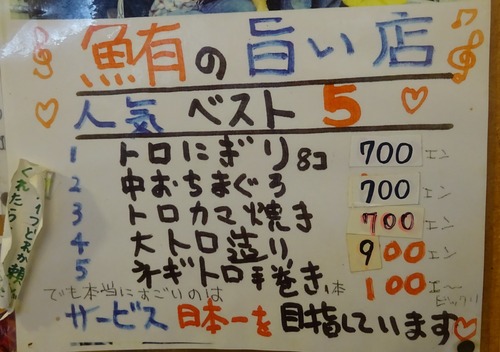 鮪の旨い店
人気 ベスト 5
1 トロにぎり 8コ 700 エン
2 中おちまぐろ 700 エン
3 トロカマ焼き 700 エン
4 大トロ造り 900 エン
5 ネギトロ手巻き 1本 100 エ〜
でも本当にすごいのは ビックリ
サービス 日本一を目指しています
くれたら